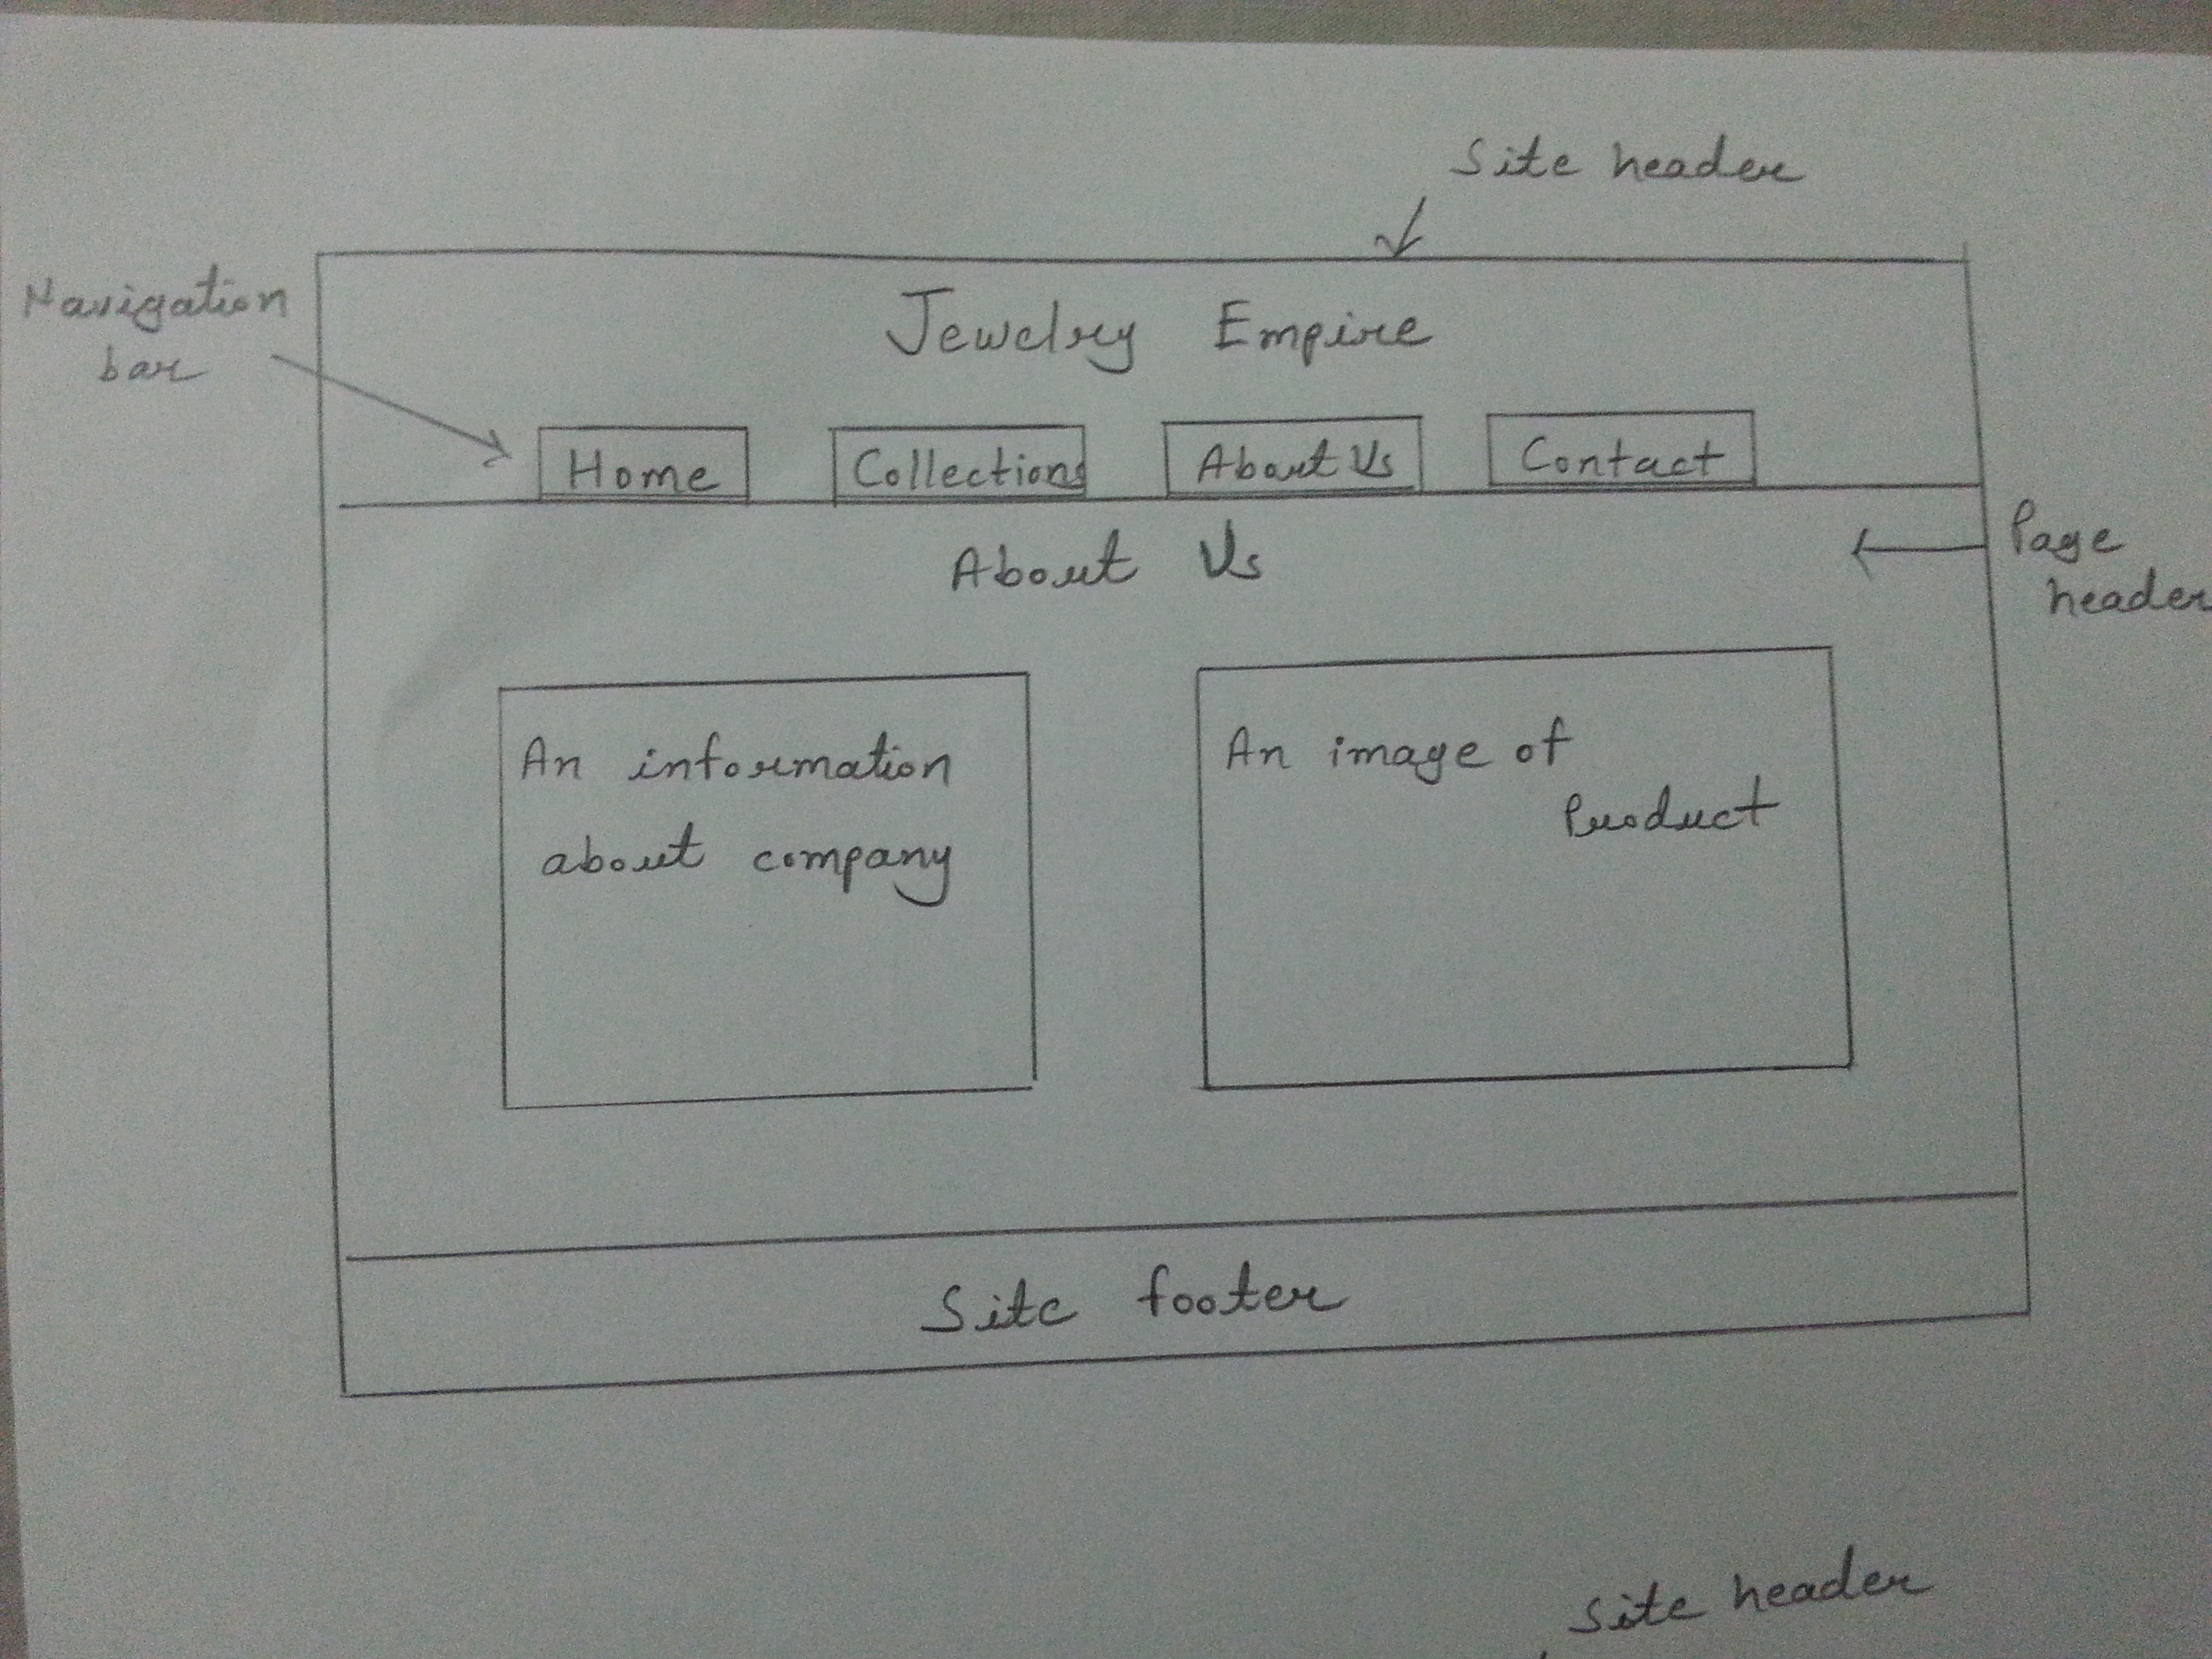 Site header
Navigation
bar
Jewelry Empire
Home
Collections
About Us
Contact
Page
header
About Us
An information
about company
An image of
Product
Site footer
Site header